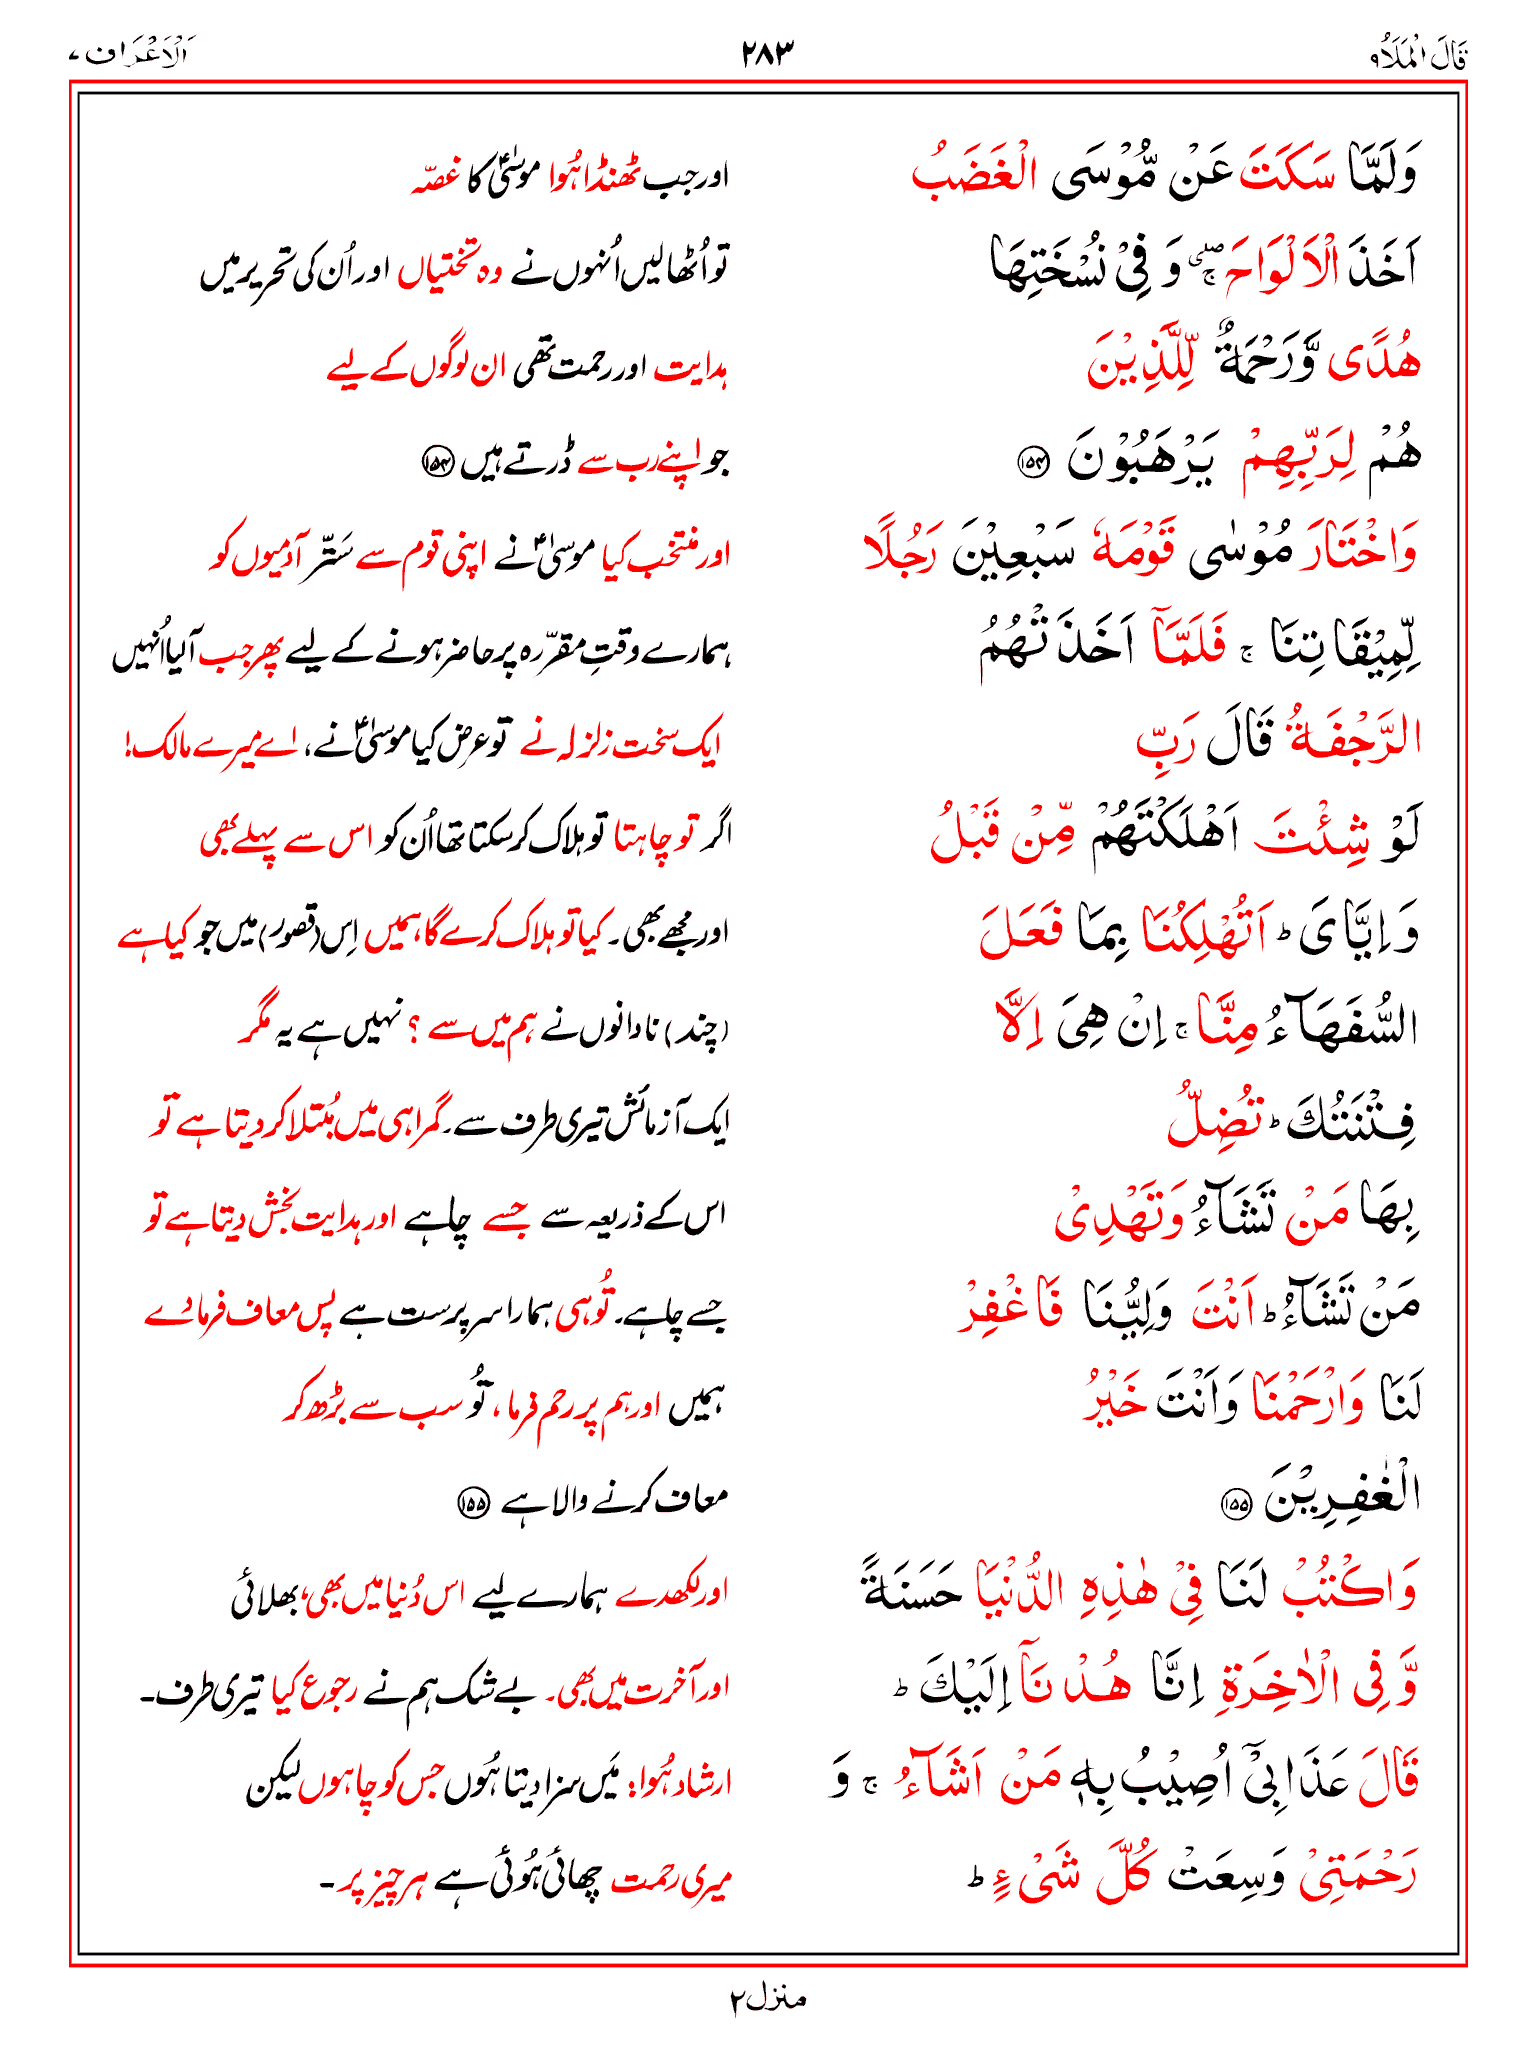 قَالَ الْمَلَاُ ٩ ٢٨٣ اَلْاَعْرَاف ٧
وَلَمَّا سَكَتَ عَنْ مُّوْسَى الْغَضَبُ اور جب ٹھنڈا ہُوا موسیٰؑ کا غصّہ
اَخَذَ الْاَلْوَاحَ ۖۚ وَ فِیْ نُسْخَتِهَا تو اُٹھالیں اُنہوں نے وہ تختیاں اور اُن کی تحریر میں
هُدًی وَّرَحْمَةٌ لِّلَّذِیْنَ ہدایت اور رحمت تھی ان لوگوں کے لیے
هُمْ لِرَبِّهِمْ یَرْهَبُوْنَ ۝۱۵۴ جو اپنے رب سے ڈرتے ہیں ۝۱۵۴
وَاخْتَارَ مُوْسٰی قَوْمَهٗ سَبْعِیْنَ رَجُلًا اور منتخب کیا موسیٰؑ نے اپنی قوم سے سَتّر آدمیوں کو
لِّمِیْقَاتِنَا ۚ فَلَمَّاۤ اَخَذَتْهُمُ ہمارے وقتِ مقرّرہ پر حاضر ہونے کے لیے پھر جب آلیا اُنہیں
الرَّجْفَةُ قَالَ رَبِّ ایک سخت زلزلہ نے تو عرض کیا موسیٰؑ نے، اے میرے مالک!
لَوْ شِئْتَ اَهْلَكْتَهُمْ مِّنْ قَبْلُ اگر تو چاہتا تو ہلاک کر سکتا تھا اُن کو اس سے پہلے بھی
وَاِیَّایَ ؕ اَتُهْلِكُنَا بِمَا فَعَلَ اور مجھے بھی۔ کیا تو ہلاک کرے گا ہمیں اِس (قصور) میں جو کیا ہے
السُّفَهَآءُ مِنَّا ۚ اِنْ هِیَ اِلَّا (چند) نادانوں نے ہم میں سے ؟ نہیں ہے یہ مگر
فِتْنَتُكَ ؕ تُضِلُّ ایک آزمائش تیری طرف سے۔ گمراہی میں مُبتلا کر دیتا ہے تو
بِهَا مَنْ تَشَآءُ وَتَهْدِیْ اس کے ذریعہ سے جسے چاہے اور ہدایت بخش دیتا ہے تو
مَنْ تَشَآءُ ؕ اَنْتَ وَلِیُّنَا فَاغْفِرْ جسے چاہے۔ تُو ہی ہمارا سرپرست ہے پس معاف فرمادے
لَنَا وَارْحَمْنَا وَاَنْتَ خَیْرُ ہمیں اور ہم پر رحم فرما، تُو سب سے بڑھ کر
الْغٰفِرِیْنَ ۝۱۵۵ معاف کرنے والا ہے ۝۱۵۵
وَاكْتُبْ لَنَا فِیْ هٰذِهِ الدُّنْیَا حَسَنَةً اور لکھدے ہمارے لیے اس دُنیا میں بھی، بھلائی
وَّ فِی الْاٰخِرَةِ اِنَّا هُدْنَاۤ اِلَیْكَ ؕ اور آخرت میں بھی۔ بے شک ہم نے رجوع کیا تیری طرف۔
قَالَ عَذَابِیْۤ اُصِیْبُ بِهٖ مَنْ اَشَآءُ ۚ وَ ارشاد ہُوا: مَیں سزا دیتا ہُوں جس کو چاہوں لیکن
رَحْمَتِیْ وَسِعَتْ كُلَّ شَیْءٍ ؕ میری رحمت چھائی ہُوئی ہے ہر چیز پر۔
منزل ٢